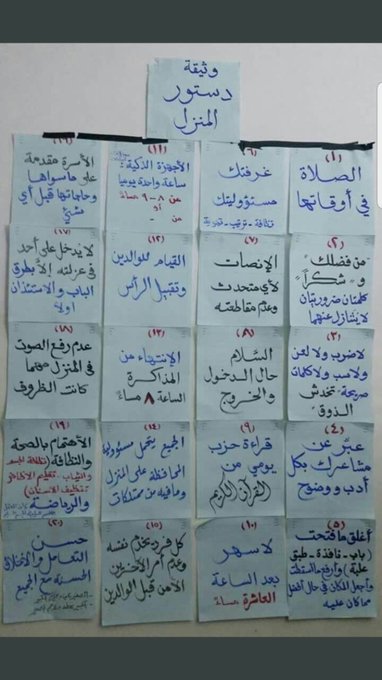 وثيقة
دستور
المنزل
(١)
الصلاة
في أوقاتها
(٢)
"من فضلك"
و "شكراً"
كلمتان ضروريتان
لا يتنازل عنهما
(٣)
لا ضرب ولا لعن
ولا سب ولا كلمات
صريحة تخدش
الذوق
(٤)
عبّر عن
مشاعرك بكل
أدب ووضوح
(٥)
أغلق ما فتحت
(باب - نافذة - طبق
علبة) وارفع ما أسقطت
واجعل المكان في حال أفضل
مما كان عليه
(٦)
غرفتك
مسئوليتك
نظافة - ترتيب - تهوية
(٧)
الإنصات
لأي متحدث
وعدم مقاطعته
(٨)
السّلام
حال الدخول
والخروج
(٩)
قراءة حزب
يومي من
القرآن الكريم
(١٠)
لا سهر
بعد الساعة
العاشرة مساءً
(١١)
الأجهزة الذكية:
ساعة واحدة يوميا
من ٨ - ٩ مساءً
أو
من -
(١٢)
القيام للوالدين
وتقبيل الرأس
(١٣)
الإنتهاء من
المذاكرة
الساعة ٨ مساءً
(١٤)
الجميع يتحمل مسؤولية
المحافظة على المنزل
وما فيه من ممتلكات
(١٥)
كل فرد يخدم نفسه
وعدم أمر الآخرين
الأمن قبل الوالدين
(١٦)
الأسرة مقدمة
على ما سواها
وحاجاتها قبل أي
شئ
(١٧)
لا يدخل على أحد
في عزلته إلا بطرق
الباب والاستئذان
أولا
(١٨)
عدم رفع الصوت
في المنزل مهما
كانت الظروف
(١٩)
الأهتمام بالصحة
والنظافة (نظافة الجسم
والثياب - تقليم الأظافر
تنظيف الأسنان)
والرياضة
(٢٠)
حسن
التعامل والأخلاق
الحسنة مع الجميع